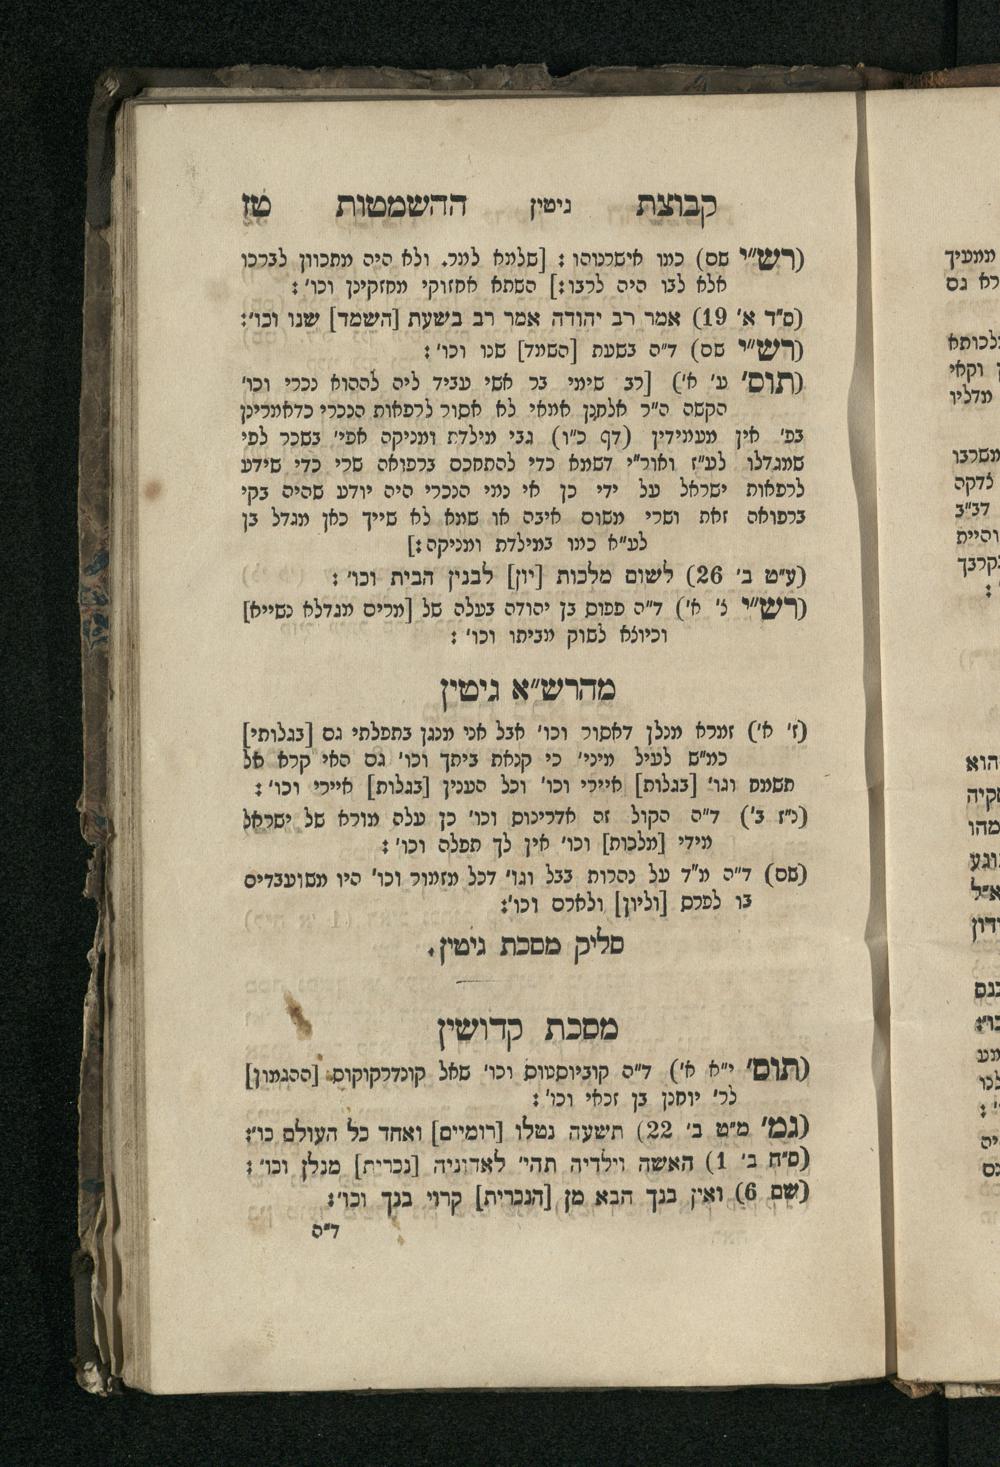 קבוצת גיטין ההשמטות טז
(רש״י שם) כמו אישרנוהו : [שלמא למר. ולא היה מתכוון לברכו
אלא לבו היה לרבו:] השתא אחזוקי מחזקינן וכו׳ :
(ס״ד א׳ 19) אמר רב יהודה אמר רב בשעת [השמד] שנו וכו׳:
(רש״י שם) ד״ה בשעת [השמד] שנו וכו׳ :
(תוס׳ ע׳ א׳) [רב שימי בר אשי עביד ליה לההוא נכרי וכו׳
הקשה ה״ר אלחנן אמאי לא אסור לרפאות הנכרי כדאמרינן
בפ׳ אין מעמידין (דף כ״ו) גבי מילדת ומניקה אפי׳ בשכר לפי
שמגדלו לע״ז ואור״י דשמא כדי להתחכם ברפואה שרי כדי שידע
לרפאות ישראל על ידי כן אי נמי הנכרי היה יודע שהיה בקי
ברפואה זאת ושרי משום איבה או שמא לא שייך כאן מגדל בן
לע״א כמו במילדת ומניקה :]
(ע״ט ב׳ 26) לשום מלכות [יון] לבנין הבית וכו׳ :
(רש״י נ׳ א׳) ד״ה פפוס בן יהודה בעלה של [מרים מגדלא נשייא]
וכיולא לשוק מביתו וכו׳ :
מהרש״א גיטין
(ז׳ א׳) זמרא מנלן דאסור וכו׳ אבל אני מנגן בתפלתי גם [בגלותי]
כמ״ש לעיל מיני׳ כי קנאת ביתך וכו׳ גם האי קרא אל
תשמח וגו׳ [בגלות] איירי וכו׳ וכל הענין [בגלות] איירי וכו׳ :
(נ״ז ב׳) ד״ה הקול זה אדריכוס וכו׳ כן עלה מורא של ישראל
מידי [מלכות] וכו׳ אין לך תפלה וכו׳ :
(שם) ד״ה מ״ד על נהרות בבל וגו׳ דכל מזמור וכו׳ היו משועבדים
בו לפרס [וליון] ולארם וכו׳:
סליק מסכת גיטין.
מסכת קדושין
(תוס׳ י״א א׳) ד״ה קוביוסטוס וכו׳ שאל קונדרקוקוס [ההגמון]
לר׳ יוחנן בן זכאי וכו׳ :
(גמ׳ מ״ט ב׳ 22) תשעה נטלו [רומיים] ואחד כל העולם כו׳:
(ס״ח ב׳ 1) האשה וילדיה תהי׳ לאדוניה [נכרית] מנלן וכו׳ :
(שם 6) ואין בנך הבא מן [הנכרית] קרוי בנך וכו׳:
ד״ה